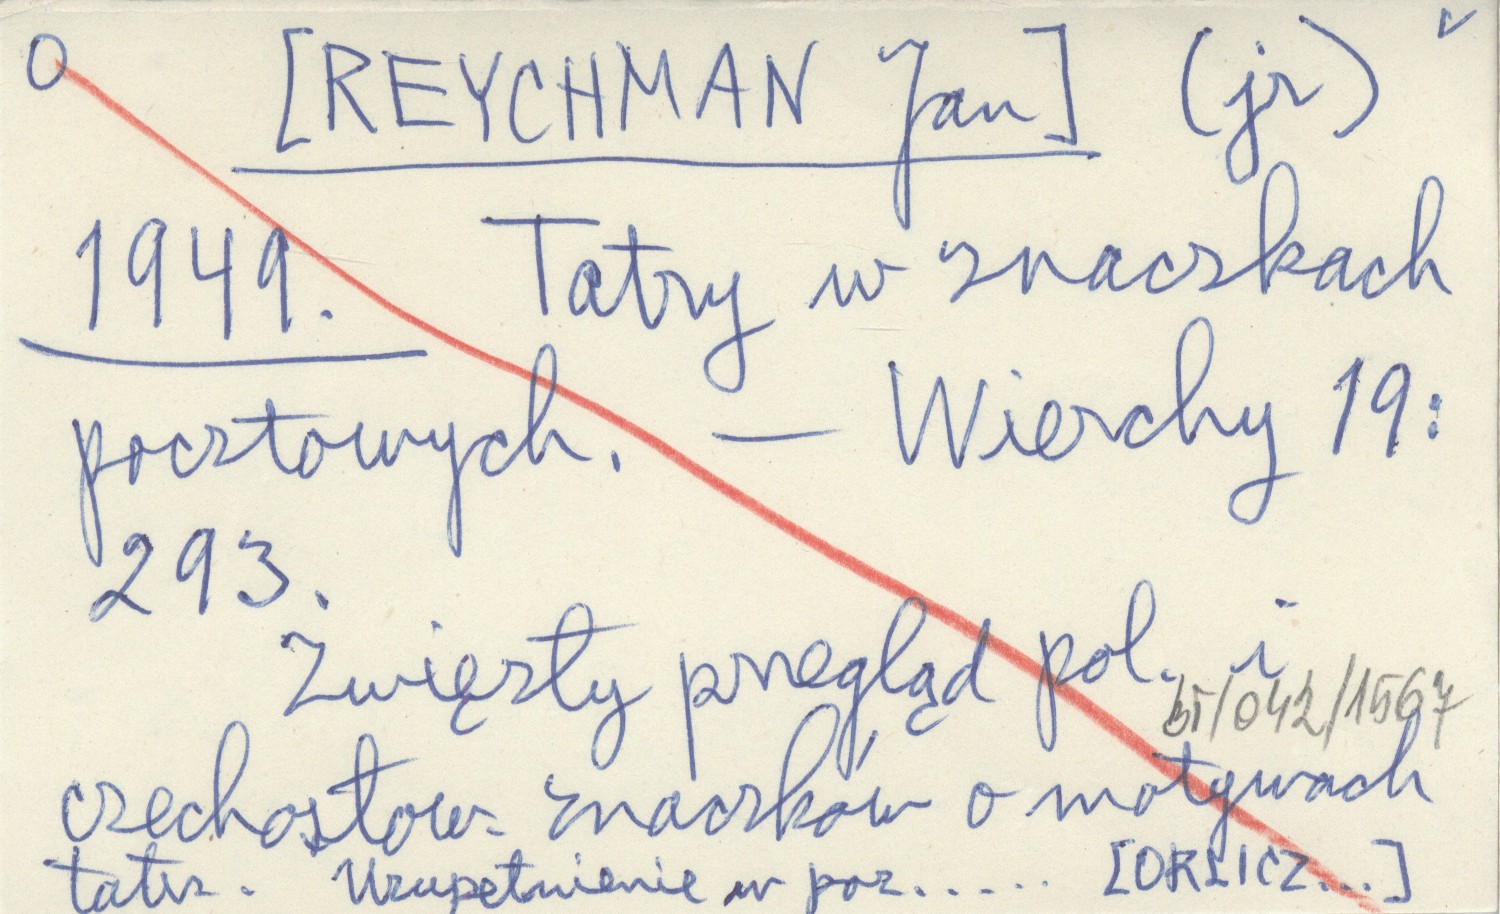 O [REYCHMAN Jan] (jr) v
1949. Tatry w znaczkach
pocztowych. — Wierchy 19:
293.
Zwięzły przegląd pol. i
bī/042/1567
czechosłow. znaczków o motywach
tatrz. Uzupełnienie w poz..... [ORLICZ...]